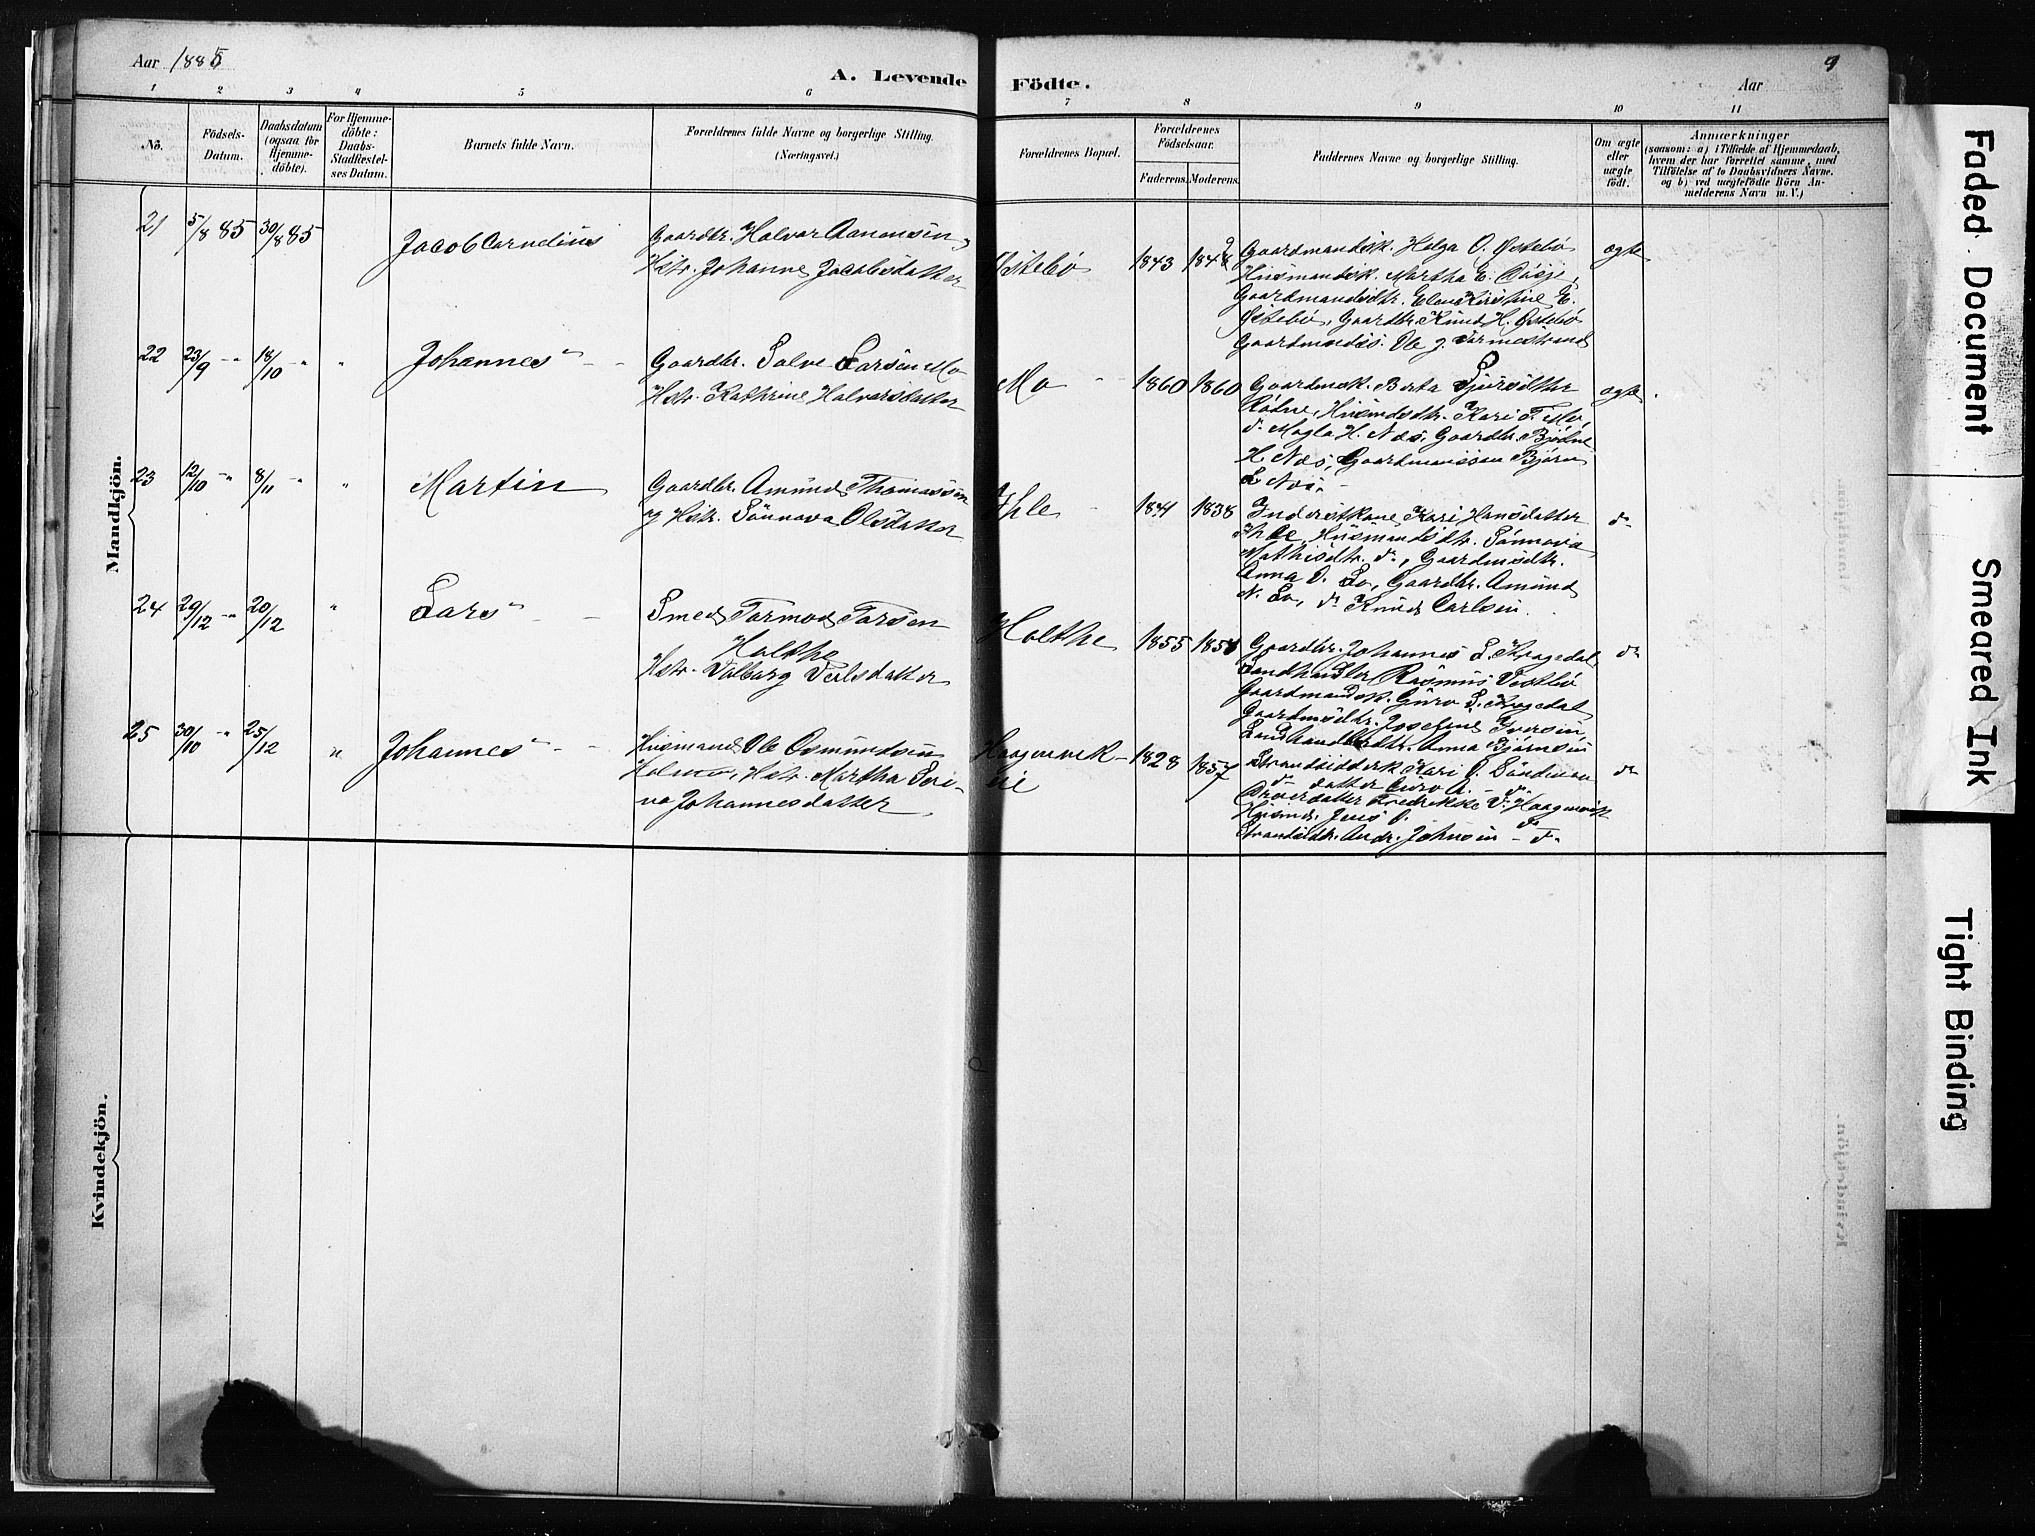 Aar 1885
A. Levende Födte.
Aar
9
1 2 3 4 5 6 7 8 9 10 11
No.
Födsels-
Datum.
Daabsdatum
(ogsaa for
Hjemme-
döbte).
For Hjemme-
döbte:
Daabs-
Stadfæstel-
ses Datum.
Barnets fulde Navn.
Forældrenes fulde Navne og borgerlige Stilling.
(Næringsvei.)
Forældrenes Bopæl.
Forældrenes
Födselsaar.
Faderens. Moderens.
Faddernes Navne og borgerlige Stilling.
Om ægte
eller
uægte
født.
Anmærkninger
(saasom: a) i Tilfælde af Hjemmedaab,
hvem der har forrettet samme, med
Tilföielse af to Daabsvidners Navne.
og b) ved uægtefödte Börn An-
melderens Navn m. V.)
Mandkjön.
21 5/8 85 30/8 85 Jacob Cornelius
Gaardbr. Halvor Aanensen,
Hstr. Johanne Jacobsdatter
Østebø 1843 1848
Gaardmandsk. Helga O. Østebø
Husmandsk. Martha E.
Gaardmandsdtr. Elen Kirstine E.
Østebø, Gaardbr. Knud H. Østebø
Gaardmandss. Ole J.
ægte
22 23/9 -"- 18/10 " " Johannes
Gaardbr. Salve Larsen Mo
Hstr. Kathrine Halvorsdatter
Mo 1860 1860
Gaardmsk. Berta Sjursdtter
Rødne, Husmdsdtr. Kari T. Mo,
do Magla H. Næs, Gaardbr. Bjödne
H. Næs, Gaardmandssøn Bjørn
L. Næs.
ægte
23 12/10 -"- 8/11 -" " Martin
Gaardbr. Amund Thomassen
og Hstr. Sönnova Olsdatter
Ihle 1841 1838
Inderstkone Kari Hansdatter
Ihle, Husmandsdtr. Sønnova
Mathisdtr. do, Gaardmsdtr.
Anna O. Lo, Gaardbr. Amund
N. Lo, do Knud Carlsen.
do
24 29/12 -"- 20/12 " Lars
Smed Tormod Torsen
Holthe
Hstr. Valborg
Holthe 1855
Gaardbr. Johannes L.
Landhandler Rasmus Vestbø
Gaardmandsk. Guro L.
Gaardmsdtr. Josefine Iversen,
Landhandlerdtr. Anna Bjørnsen
do
25 30/10 -"- 25/12 " Johannes
Husmand Ole Osmundsen
Holmen, Hstr. Martha Seri-
na Johannesdatter
Haagenvik-
eie 1828 1857
Strandsidderk. Kari O.
do datter Guro A. - do
datter Fredrikke V. Haagenvik
Husmd. Jens O. do
Strandsdtr. Andr. Johnsen - do
do
Kvindekjön.
Faded Document
Smeared Ink
Tight Binding